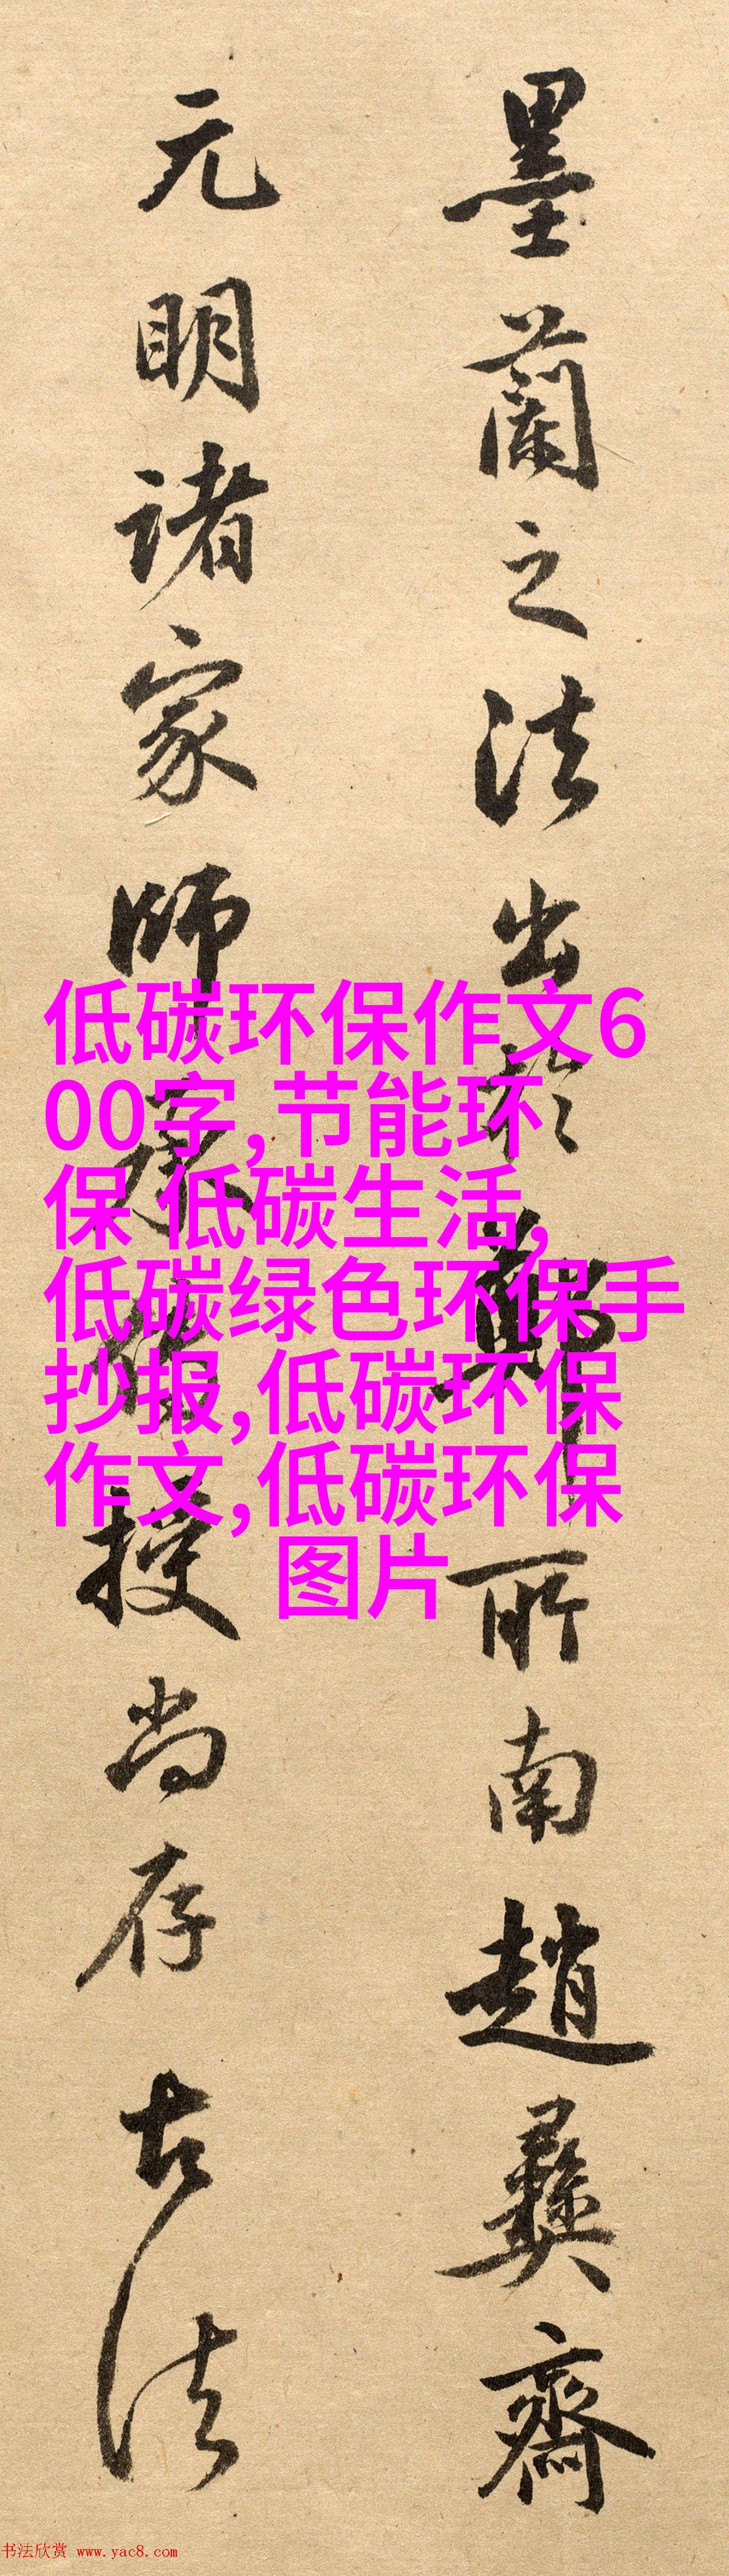 墨蘭之法出於鄭所南趙彝齋
元明諸家師承傳授尚存古法
低碳环保作文6
00字,节能环
保 低碳生活,
低碳绿色环保手
抄报,低碳环保
作文,低碳环保
图片
书法欣赏 www.yac8.com